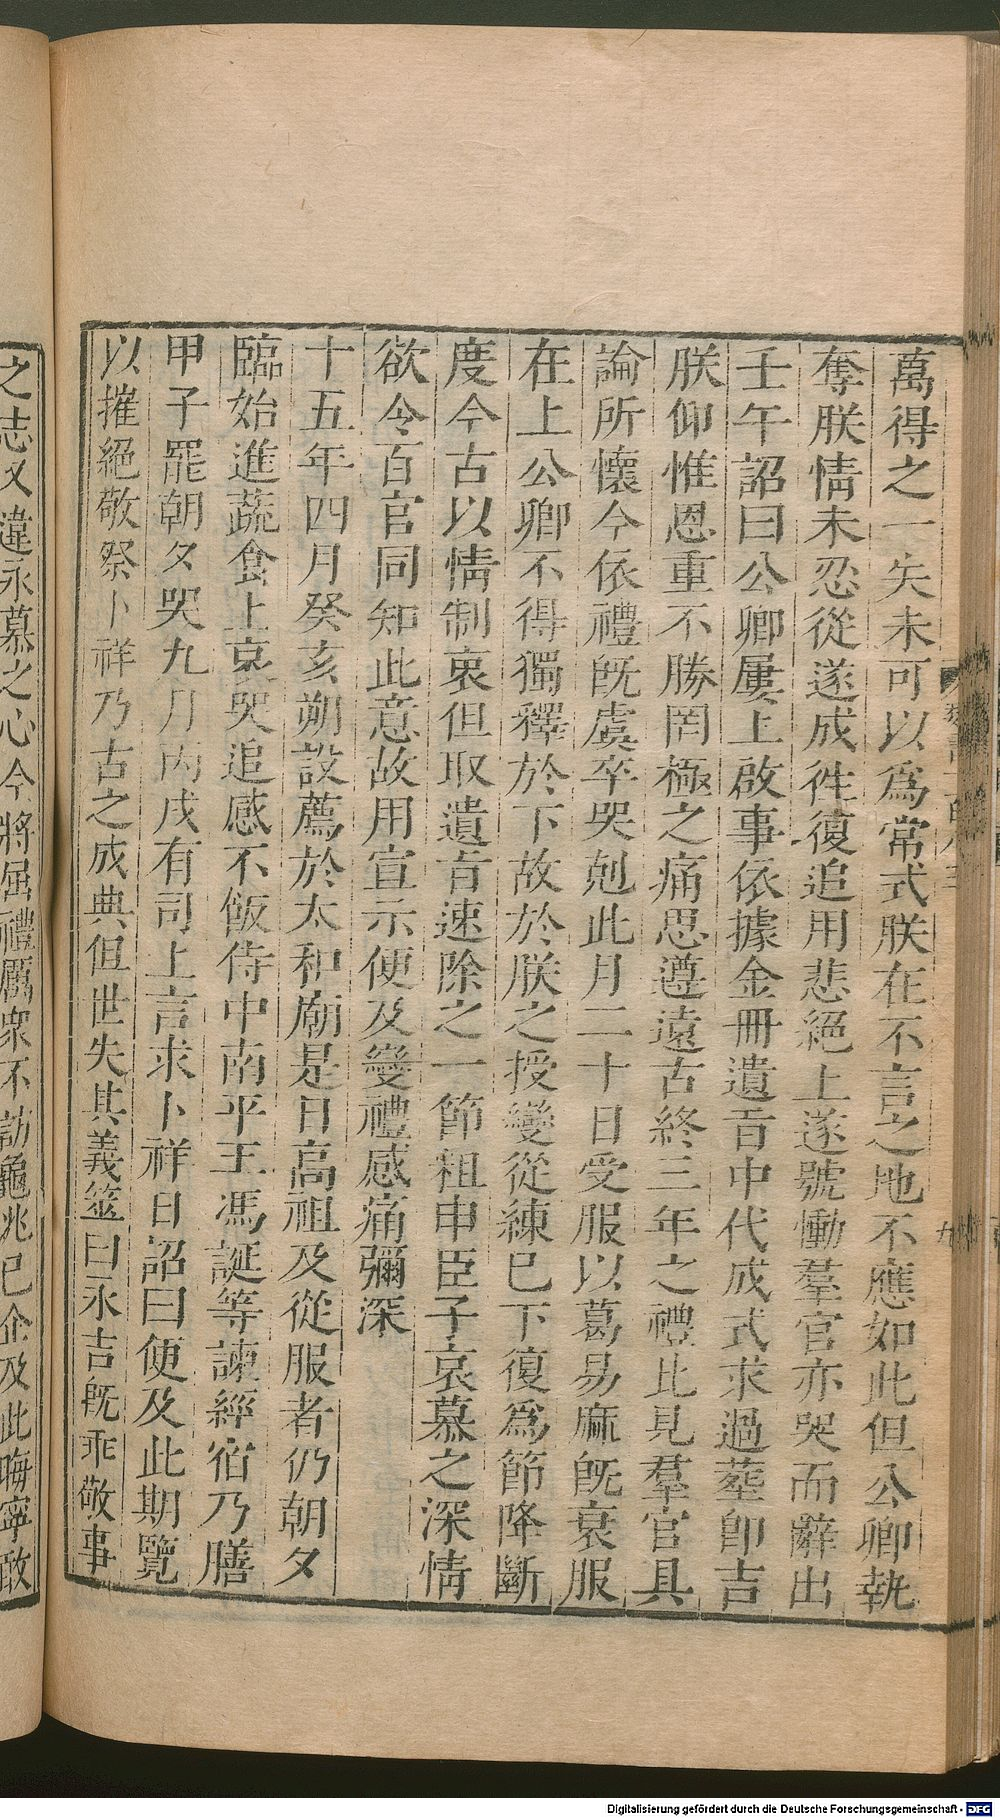 萬得之一失未可以爲常式朕在不言之地不應如此但公卿執
奪朕情未忍從遂成往復追用悲絕上遂號慟羣官亦哭而辭出
壬午詔曰公卿屢上啟事依據金冊遺旨中代成式求過葬卽吉
朕仰惟恩重不勝罔極之痛思遵遠古終三年之禮比見羣官具
論所懷今依禮旣虞卒哭剋此月二十日受服以葛易麻旣衰服
在上公卿不得獨釋於下故於朕之授變從練已下復爲節降斷
度今古以情制衷但取遺旨速除之一節粗申臣子哀慕之深情
欲令百官同知此意故用宣示便及變禮感痛彌深
十五年四月癸亥朔設薦於太和廟是日高祖及從服者仍朝夕
臨始進蔬食上哀哭追感不飯侍中南平王馮誕等諫經宿乃膳
甲子罷朝夕哭九月丙戌有司上言求卜祥日詔曰便及此期覽
以摧絕敬祭卜祥乃古之成典但世失其義筮曰永吉旣乖敬事
之志又違永慕之心今將屈禮厲衆不訪龜兆已企及此晦寧敢
九
Digitalisierung gefördert durch die Deutsche Forschungsgemeinschaft - DFG